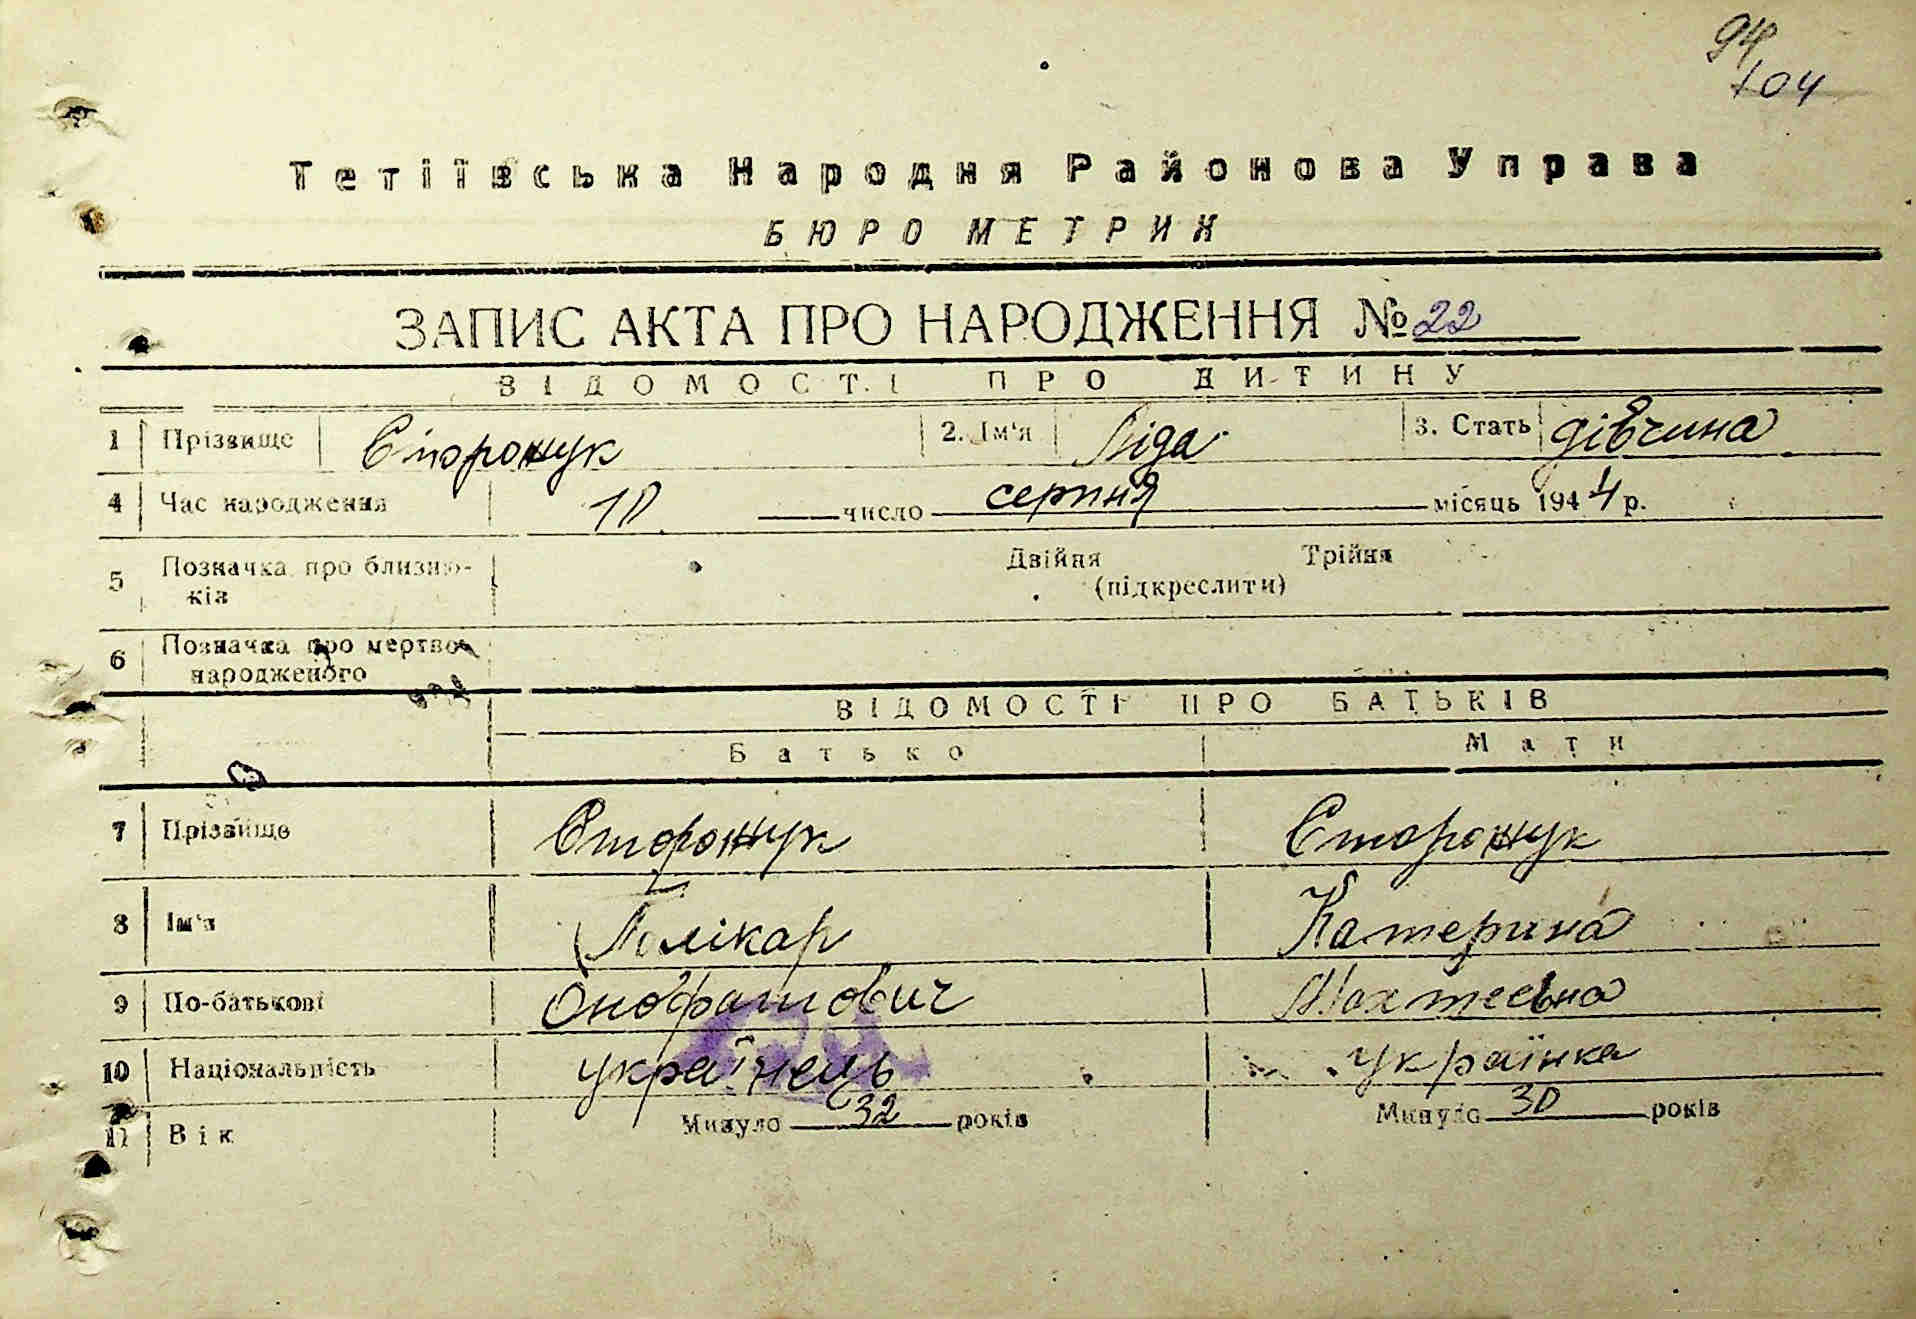 94
104
Тетіївська Народня Районова Управа
БЮРО МЕТРИК
ЗАПИС АКТА ПРО НАРОДЖЕННЯ № 22
ВІДОМОСТІ ПРО ДИТИНУ
1 Прізвище Сторожук 2. Ім'я Ліда 3. Стать дівчина
4 Час народження 10 число серпня місяць 1944 р.
5 Позначка про близню- Двійня Трійня
ків (підкреслити)
6 Позначка про мертво-
народженого
ВІДОМОСТІ ПРО БАТЬКІВ
Батько Мати
7 Прізвище Сторожук Сторожук
8 Ім'я Полікар Катерина
9 По-батькові Онофратович Махтеєвна
10 Національність українець українка
11 Вік Минуло 32 років Минуло 30 років